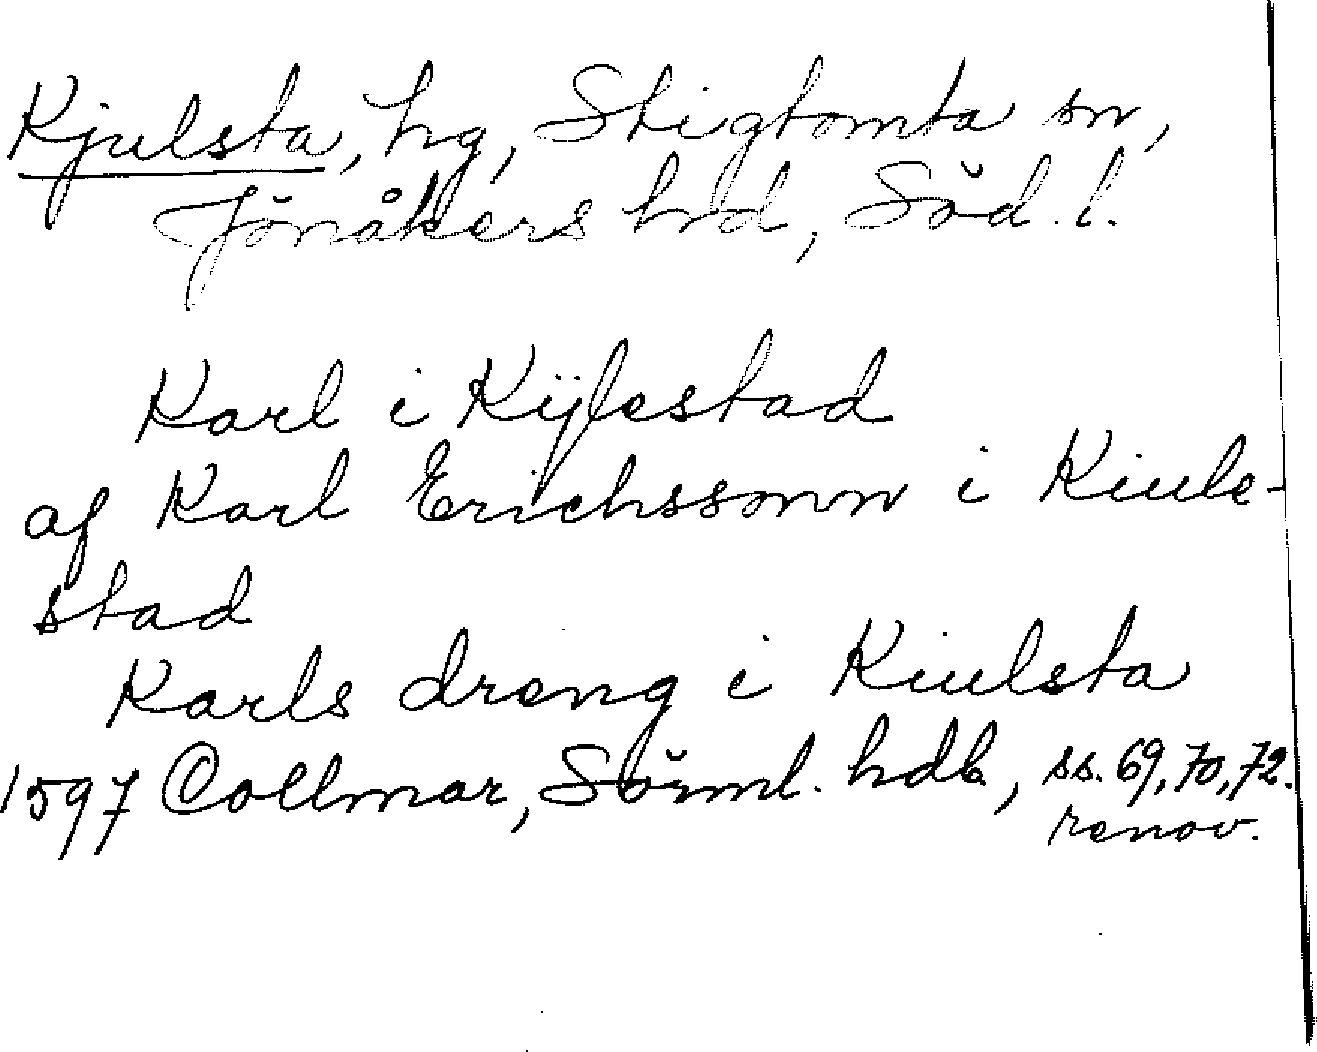 Kjulsta, hg, Stigtomta sn,
Jönåkers hrd, Söd. l.
Karl i Kÿlestad
af Karl Erichssonn i Kiule-
stad
Karls dreng i Kiulsta
1597 Collmar, Sörml. hdl, ss. 69, 70, 72.
renov.